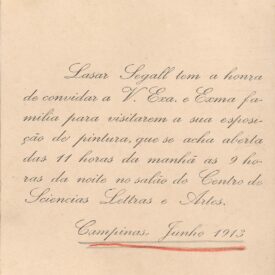 Lasar Segall tem a honra
de convidar a V. Exa. e Exma fa-
milia para visitarem a sua exposi-
ção de pintura, que se acha aberta
das 11 horas da manhã as 9 ho-
ras da noite no salão do Centro de
Sciencias Lettras e Artes.
Campinas. Junho 1913